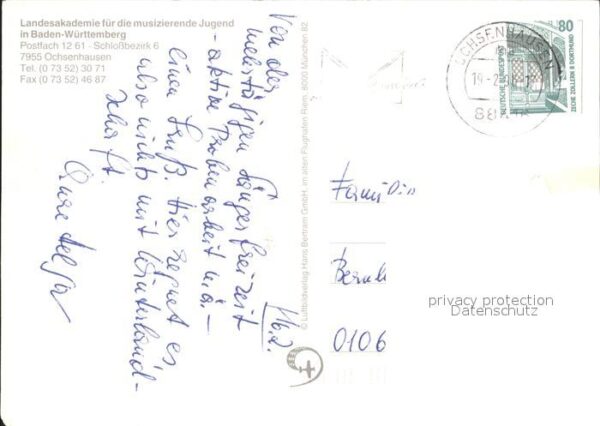 Landesakademie für die musizierende Jugend
in Baden-Württemberg
Postfach 12 61 · Schloßbezirk 6
7955 Ochsenhausen
Tel. (0 73 52) 30 71
Fax (0 73 52) 46 87
16.2.
Von der
mehrtägigen Sängerfreizeit
- aktive Probenarbeit u.a. -
einen Gruß. Hier regnet es
also nichts mit Winterland-
schaft.
Eure
© Luftbildverlag Hans Bertram GmbH, im alten Flughafen Riem, 8000 München 82
OCHSENHAUSEN
19.-2.
88
80
DEUTSCHE BUNDESPOST
ZECHE ZOLLERN II DORTMUND
Familie
0106
privacy protection
Datenschutz